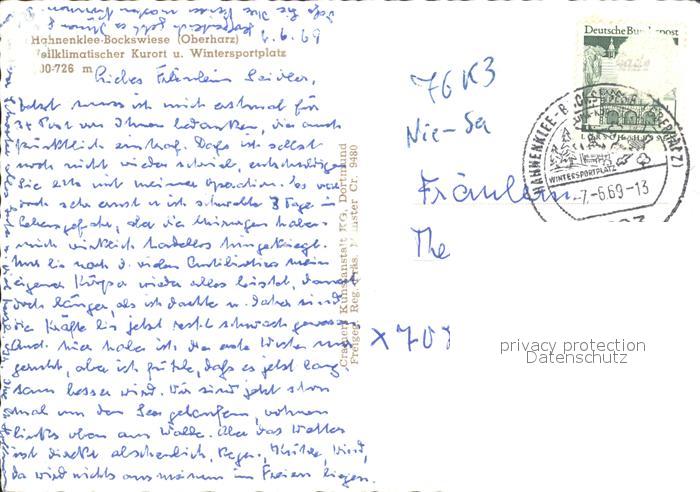 6.6.69
Hahnenklee-Bockswiese (Oberharz)
Heilklimatischer Kurort u. Wintersportplatz
00-726 m
Liebes Fräulein Seidler,
Jetzt muss ich mich erstmal für
Post von Ihnen bedanken, die auch
pünktlich eintraf. Dass ich selbst
noch nicht wieder schrieb, entschuldigen
Sie bitte mit meiner Operation. Es war
doch sehr ernst u. ich schwebte 8 Tage in
Lebensgefahr, aber die Chirurgen haben
mich wirklich tadellos hingekriegt.
Nur bis nach d. vielen Antibiotica mein
eigener Körper wieder alles leistet, dauert
doch länger, als ich dachte u. daher sind
die Kräfte bis jetzt recht schwach gewesen.
Auch hier habe ich die erste Woche nur
geruht, aber ich fühle, dass es jetzt lang-
sam besser wird. Wir sind jetzt schon
mal um den See gelaufen, wohnen
links oben am Walde. Aber das Wetter
ist direkt abscheulich, Regen, Kälte, Wind,
da wird nichts aus meinem im Freien liegen.
Cramers Kunstanstalt KG, Dortmund
Freigeg. Reg. Präs. Münster Cr. 9480
76 K3
Nie-Se
Fräulein
The
X 701
Deutsche Bundespost
HAHNENKLEE-BOCKSWIESE (OBERHARZ)
WINTERSPORTPLATZ
-7.-6.69-13
privacy protection
Datenschutz